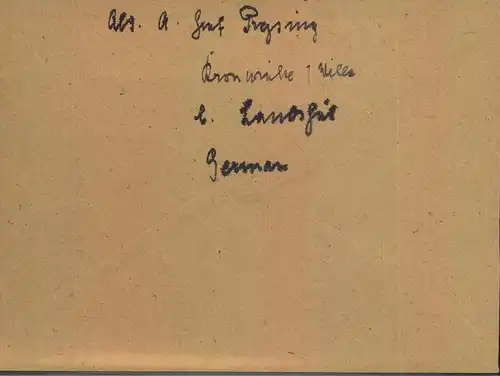 Abs. A. Graf Preysing
Kronwinkl / Vils
b. Landshut
German